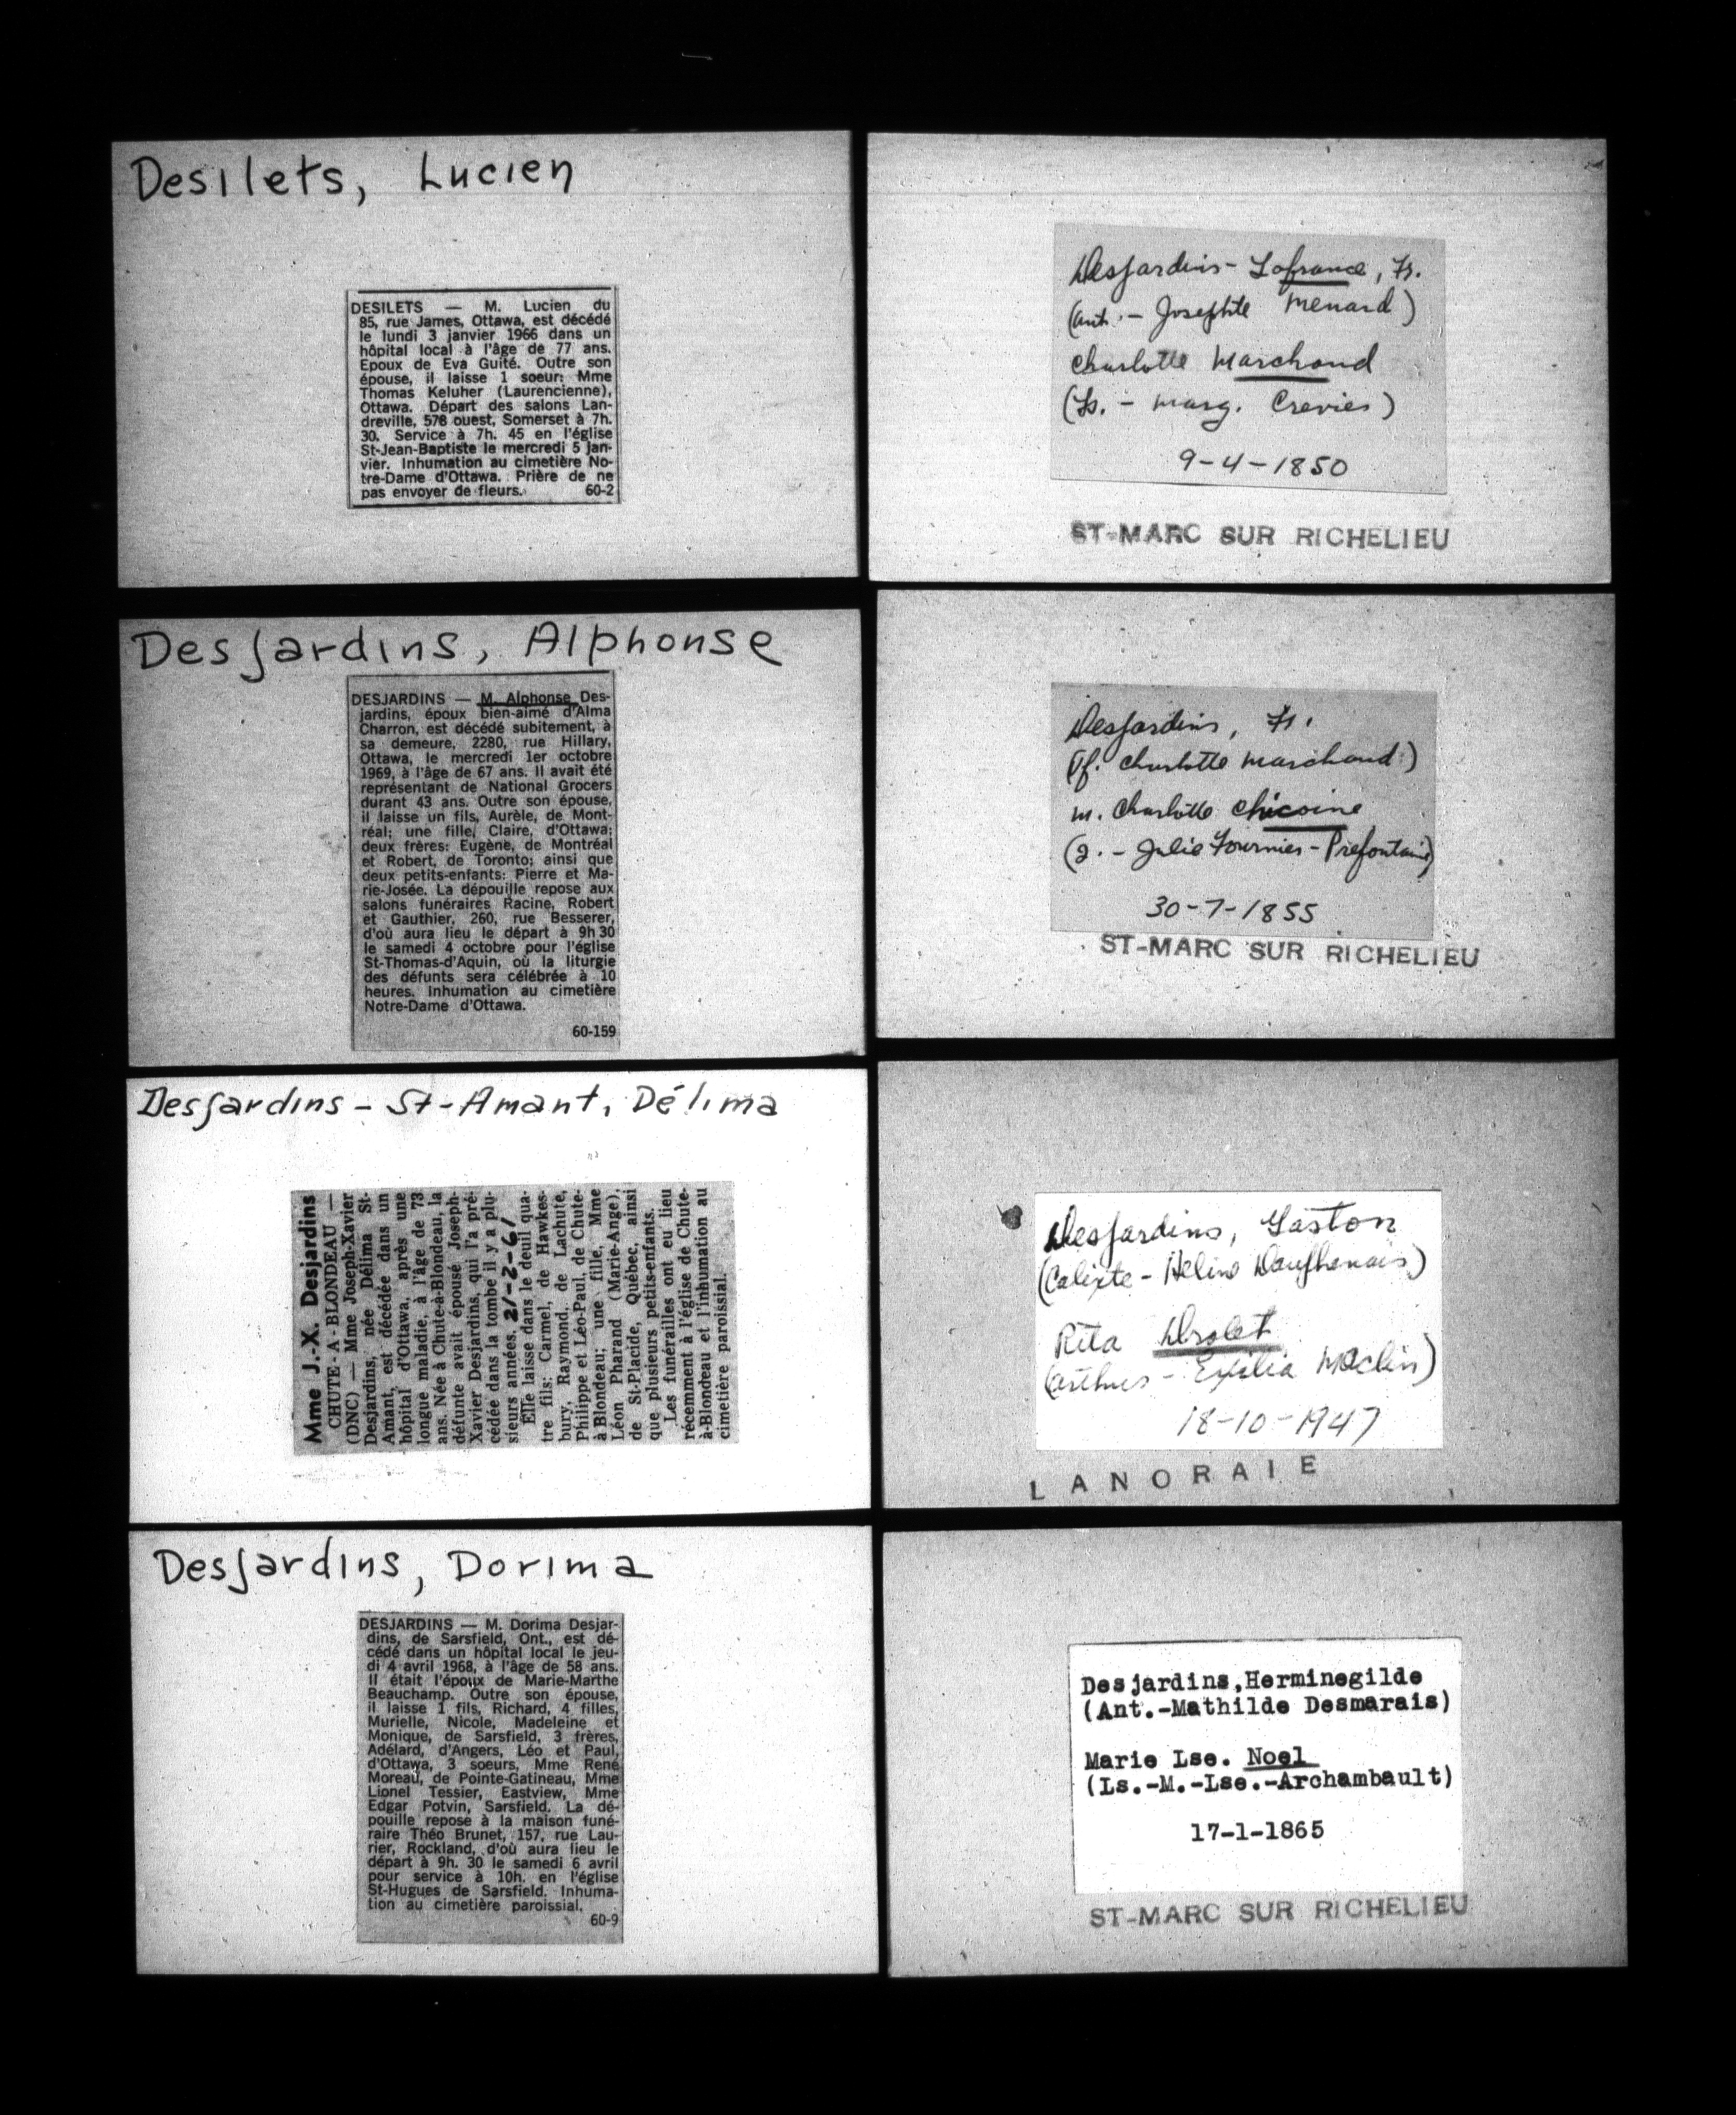 Desilets, Lucien
DESILETS — M. Lucien du
85, rue James, Ottawa, est décédé
le lundi 3 janvier 1966 dans un
hôpital local à l'âge de 77 ans.
Epoux de Eva Guité. Outre son
épouse, il laisse 1 soeur: Mme
Thomas Keluher (Laurencienne),
Ottawa. Départ des salons Lan-
dreville, 578 ouest, Somerset à 7h.
30. Service à 7h. 45 en l'église
St-Jean-Baptiste le mercredi 5 jan-
vier. Inhumation au cimetière No-
tre-Dame d'Ottawa. Prière de ne
pas envoyer de fleurs. 60-2
Desjardins, Alphonse
DESJARDINS — M. Alphonse Des-
jardins, époux bien-aimé d'Alma
Charron, est décédé subitement, à
sa demeure, 2280, rue Hillary,
Ottawa, le mercredi 1er octobre
1969, à l'âge de 67 ans. Il avait été
représentant de National Grocers
durant 43 ans. Outre son épouse,
il laisse un fils, Aurèle, de Mont-
réal; une fille, Claire, d'Ottawa;
deux frères: Eugène, de Montréal
et Robert, de Toronto; ainsi que
deux petits-enfants: Pierre et Ma-
rie-Josée. La dépouille repose aux
salons funéraires Racine, Robert
et Gauthier, 260, rue Besserer,
d'où aura lieu le départ à 9h 30
le samedi 4 octobre pour l'église
St-Thomas-d'Aquin, où la liturgie
des défunts sera célébrée à 10
heures. Inhumation au cimetière
Notre-Dame d'Ottawa.
60-159
Desjardins - St-Amant, Délima
Mme J.-X. Desjardins
CHUTE - A - BLONDEAU —
(DNC) — Mme Joseph-Xavier
Desjardins, née Délima St-
Amant, est décédée dans un
hôpital d'Ottawa, après une
longue maladie, à l'âge de 73
ans. Née à Chute-à-Blondeau, la
défunte avait épousé Joseph-
Xavier Desjardins, qui l'a pré-
cédée dans la tombe il y a plu-
sieurs années. 21-2-61
Elle laisse dans le deuil qua-
tre fils: Carmel, de Hawkes-
bury, Raymond, de Lachute,
Philippe et Léo-Paul, de Chute-
à-Blondeau; une fille, Mme
Léon Pharand (Marie-Ange),
de St-Placide, Québec, ainsi
que plusieurs petits-enfants.
Les funérailles ont eu lieu
récemment à l'église de Chute-
à-Blondeau et l'inhumation au
cimetière paroissial.
Desjardins, Dorima
DESJARDINS — M. Dorima Desjar-
dins, de Sarsfield, Ont., est dé-
cédé dans un hôpital local le jeu-
di 4 avril 1968, à l'âge de 58 ans.
Il était l'époux de Marie-Marthe
Beauchamp. Outre son épouse,
il laisse 1 fils, Richard, 4 filles,
Murielle, Nicole, Madeleine et
Monique, de Sarsfield, 3 frères,
Adélard, d'Angers, Léo et Paul,
d'Ottawa, 3 soeurs, Mme René
Moreau, de Pointe-Gatineau, Mme
Lionel Tessier, Eastview, Mme
Edgar Potvin, Sarsfield. La dé-
pouille repose à la maison funé-
raire Théo Brunet, 157, rue Lau-
rier, Rockland, d'où aura lieu le
départ à 9h. 30 le samedi 6 avril
pour service à 10h. en l'église
St-Hugues de Sarsfield. Inhuma-
tion au cimetière paroissial.
60-9
Desjardins - Lafrance, Fs.
(Ant. - Josephte Menard)
Charlotte Marchand
(Fs. - Marg. Crevier)
9-4-1850
ST-MARC SUR RICHELIEU
Desjardins, Fs.
(Vf. Charlotte Marchand)
m. Charlotte Chicoine
(J. - Julie Fournier-Prefontaine)
30-7-1855
ST-MARC SUR RICHELIEU
Desjardins, Gaston
(Calixte - Héline Dauphenais)
Rita Drolet
(Arthur - Exilia Maclin)
18-10-1947
LANORAIE
Desjardins,Herminegilde
(Ant.-Mathilde Desmarais)
Marie Lse. Noel
(Ls.-M.-Lse.-Archambault)
17-1-1865
ST-MARC SUR RICHELIEU